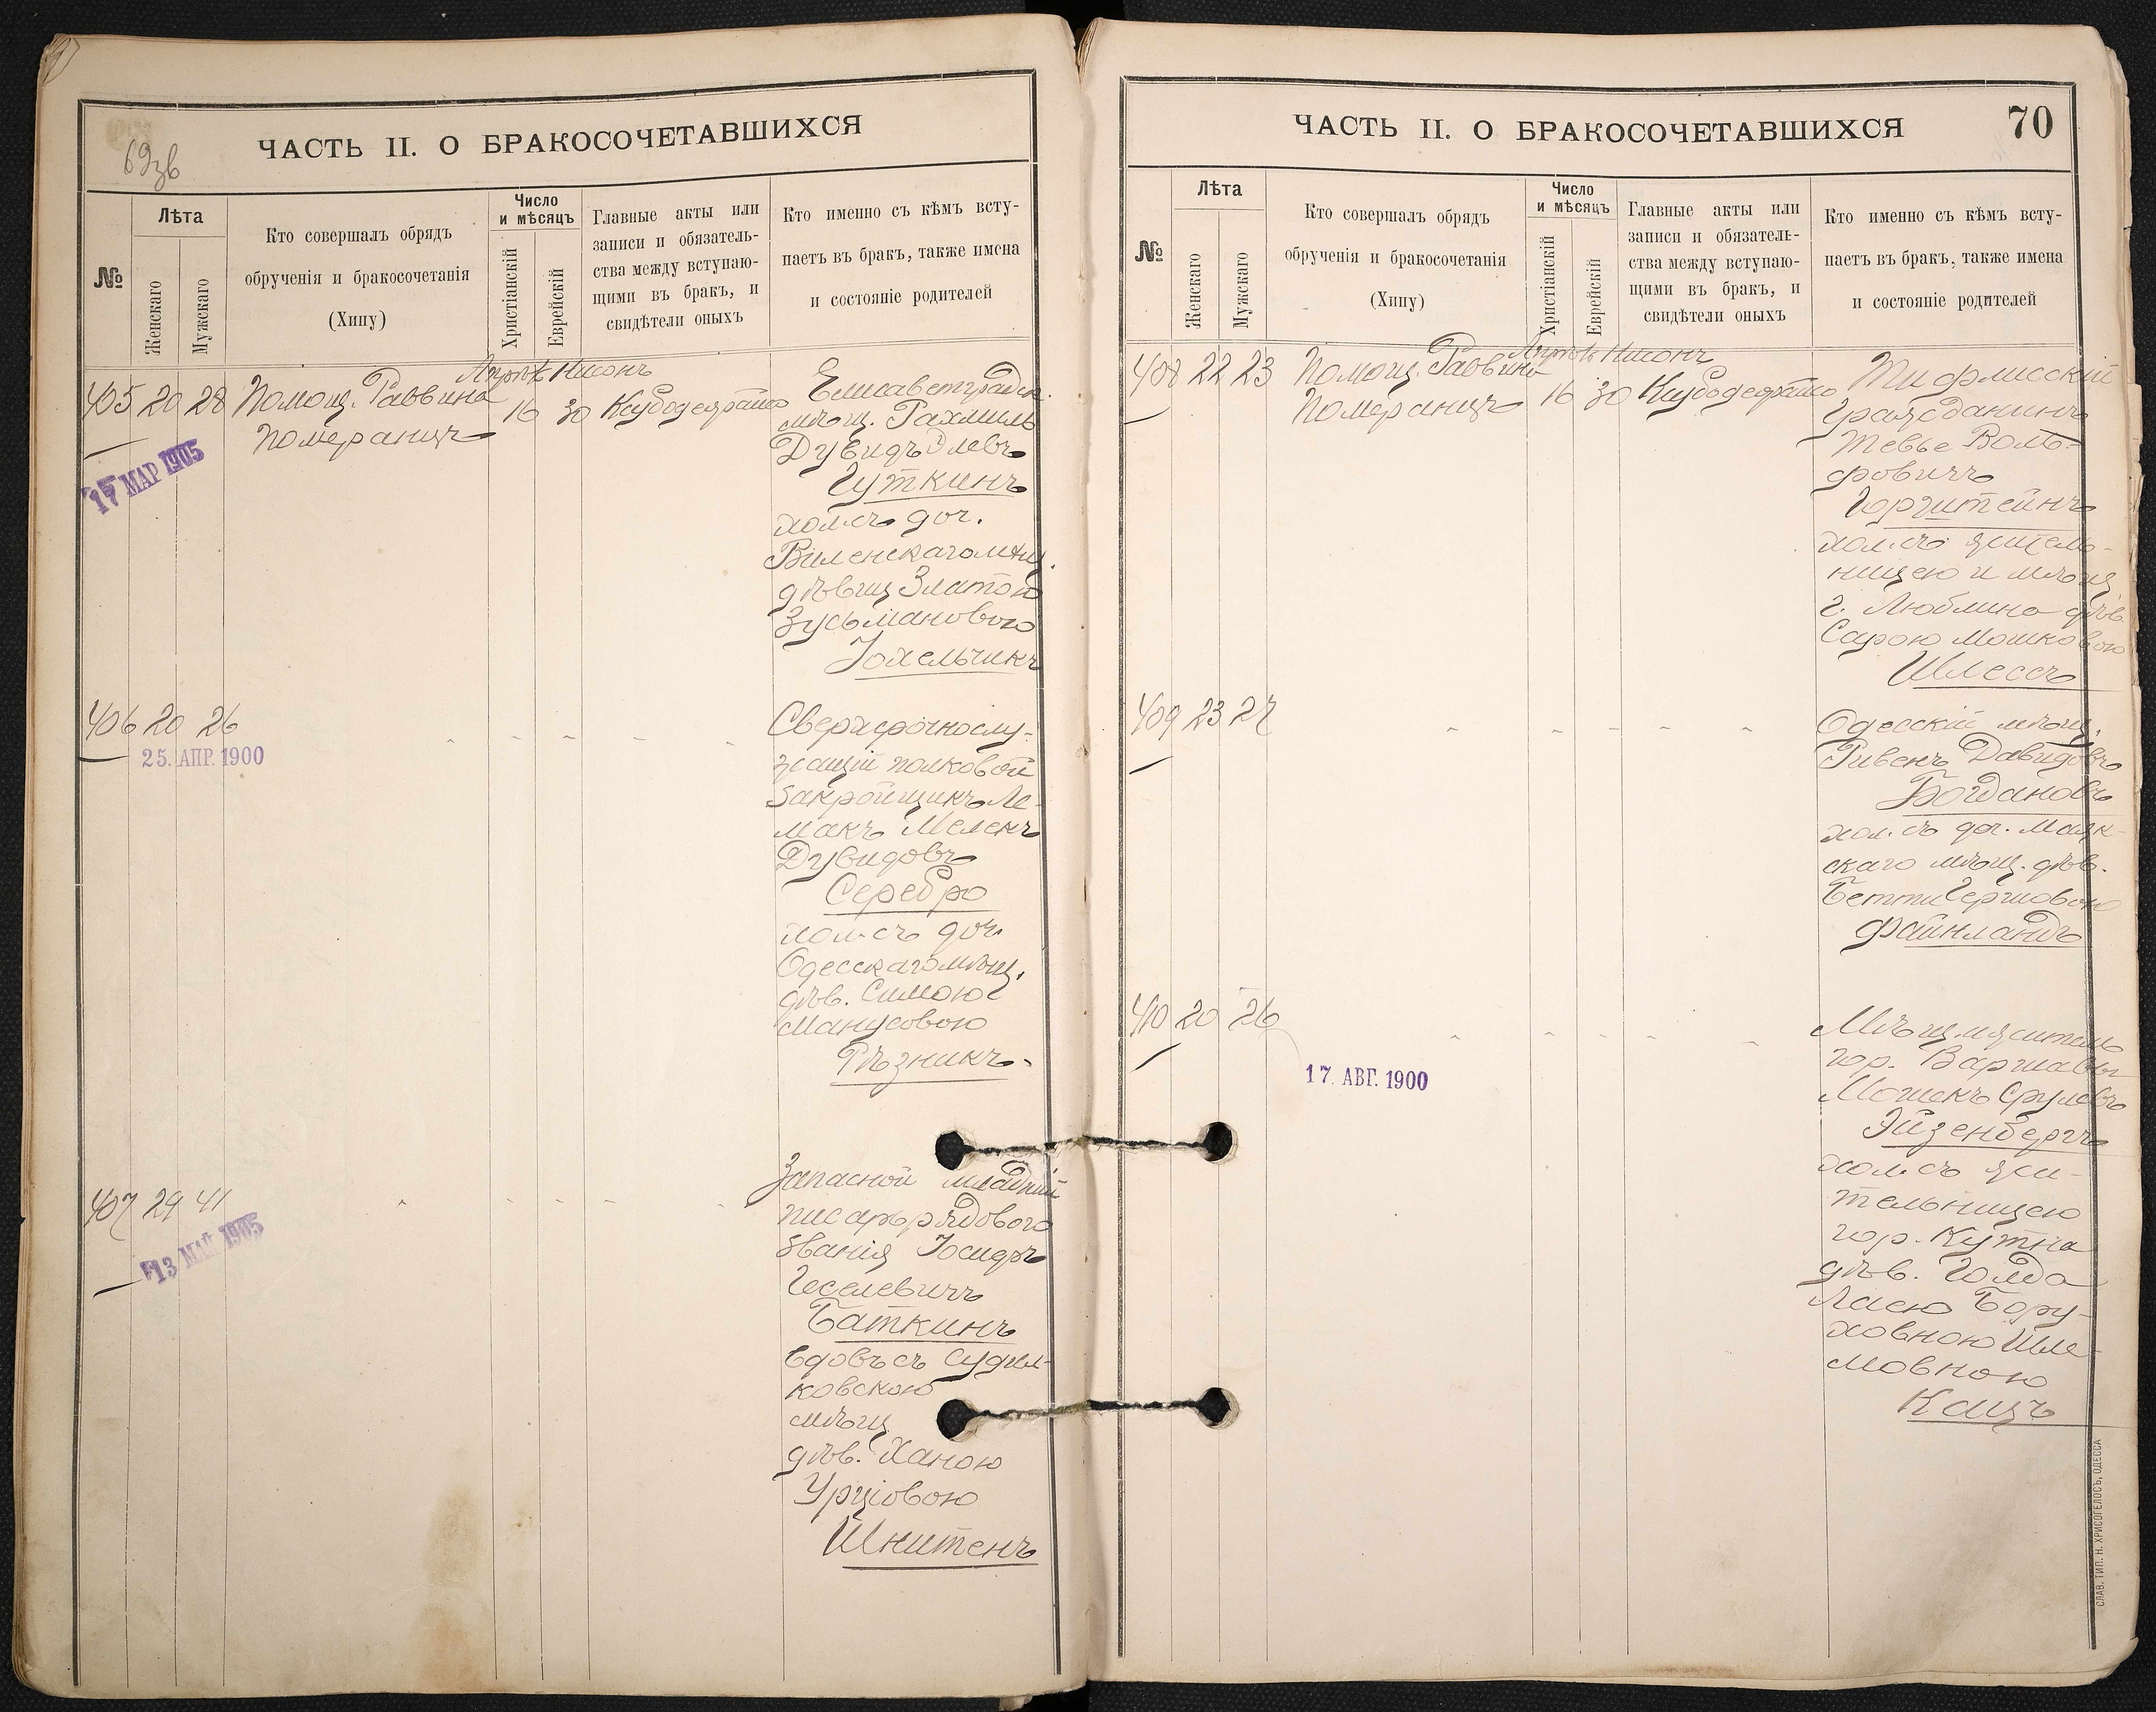 69зв
ЧАСТЬ II. О БРАКОСОЧЕТАВШИХСЯ
№
Лѣта
Женскаго
Мужскаго
Кто совершалъ обрядъ
обрученія и бракосочетанія
(Хипу)
Число
и мѣсяцъ
Христіанскій
Еврейскій
Главные акты или
записи и обязатель-
ства между вступаю-
щими въ бракъ, и
свидѣтели оныхъ
Кто именно съ кѣмъ всту-
паетъ въ бракъ, также имена
и состояніе родителей
Апрѣль Нисонъ
405 20 28 Помощ. Раввина 16 30
Померанцъ
17 МАР 1905
Елисаветградск.
мѣщ. Рахмиль
Дувидъ
Гуткинъ
хол. съ доч.
Виленскаго мѣщ.
дѣвиц Златою
Зусьмановою
Іохельчикъ
406 20 26
25. АПР. 1900
Сверхсрочнослу-
жащій полковой
закройщикъ Ле-
макъ Мелехъ
Дувидовъ
Серебро
хол. съ доч.
Одесскаго мѣщ.
дѣв. Симою
Манусовою
Рѣзникъ
407 29 41
13 МАЙ 1905
Запасной младшій
писарь рядового
званія Іосифъ
Геселевичъ
Баткинъ
вдовъ съ Судил-
ковскою
мѣщ
дѣв. Ханою
Урціовою
Шнитенъ
ЧАСТЬ II. О БРАКОСОЧЕТАВШИХСЯ
70
№
Лѣта
Женскаго
Мужскаго
Кто совершалъ обрядъ
обрученія и бракосочетанія
(Хипу)
Число
и мѣсяцъ
Христіанскій
Еврейскій
Главные акты или
записи и обязатель-
ства между вступаю-
щими въ бракъ, и
свидѣтели оныхъ
Кто именно съ кѣмъ всту-
паетъ въ бракъ, также имена
и состояніе родителей
Апрѣль Нисонъ
408 22 23 Помощ. Раввина 16 30
Померанцъ
Тифлисскій
гражданинъ
Тевье Воль-
фовичъ
Горштейнъ
хол. съ житель-
ницею и мѣщ
г. Люблина дѣв.
Сарою Мошковою
Шлессъ
409 23 27
Одесскій мѣщ.
Ривенъ Давидовъ
Богдановъ
хол. съ доч. Маяк-
скаго мѣщ. дѣв.
Бетти Гершовою
Файнландъ
410 20 26
17. АВГ. 1900
Мѣщ и житель
гор. Варшавы
Мошекъ Срулевъ
Эйзенбергъ
хол. съ жи-
тельницею
гор. Кутна
дѣв. Голда
Ласею Бору-
ховною Шле-
мовною
Кацъ
СЛАВ. ТИП. Н. ХРИСОГЕЛОСЪ, ОДЕССА